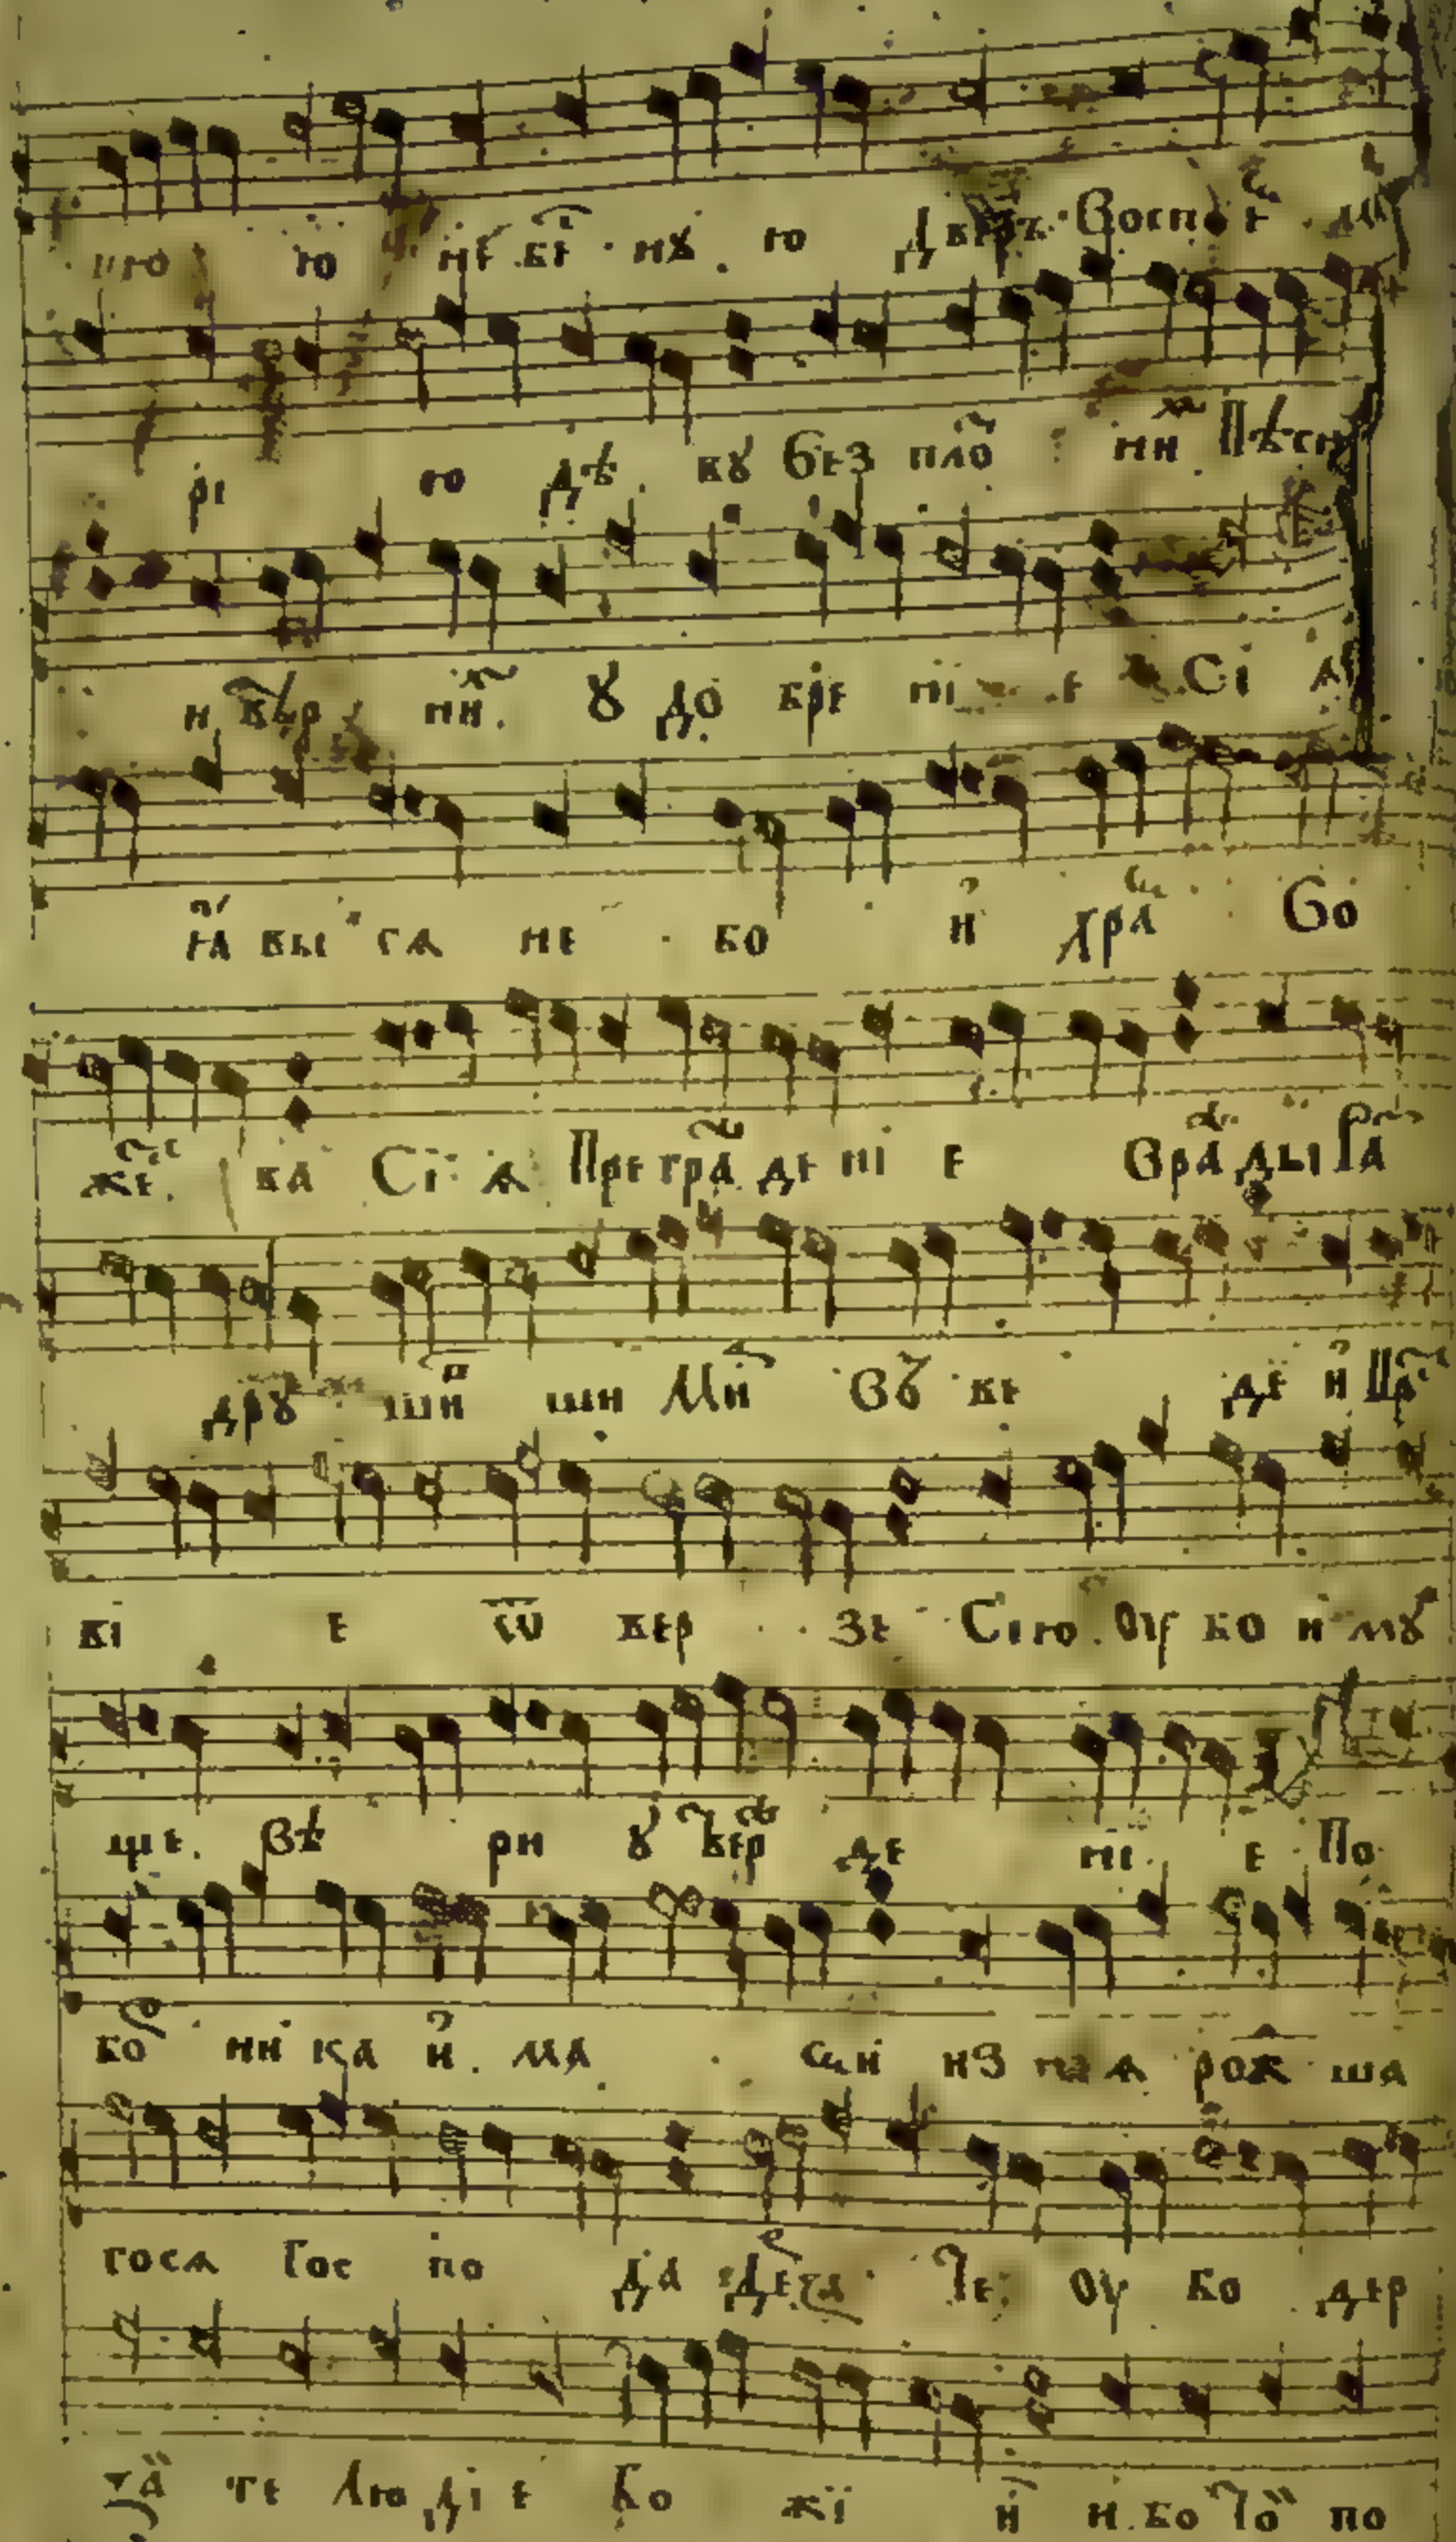 ю не бе нꙋ ю дверь Восп ѣ
рі ю Дѣ вꙋ Без пло ни Пѣсн
и вѣр ни ꙋ до бре ні е Сі ѧ
ꙗ вы сѧ не бо и хра Бо
же ва Сі ѧ Пре гра де ні е Вра ды Ра
дрꙋ ши ши Ми Въ ве де и Цр
ві е ѿ вер зе Сію Оу бо и мꙋ
ще. Вѣ ри ꙋ вер де ні е По
бо ни ка и ма щи из неѧ рож ша
госѧ Гос по да Де Те Оу бо дер
те Лю ді е Бо жі и И бо То по